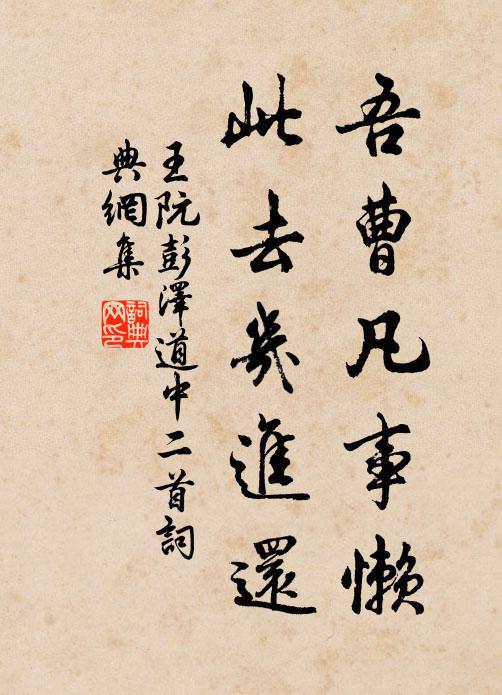 吾曹凡事懒
此去幾進還
王阮彭澤道中二首詞
典網集
詞典
网印